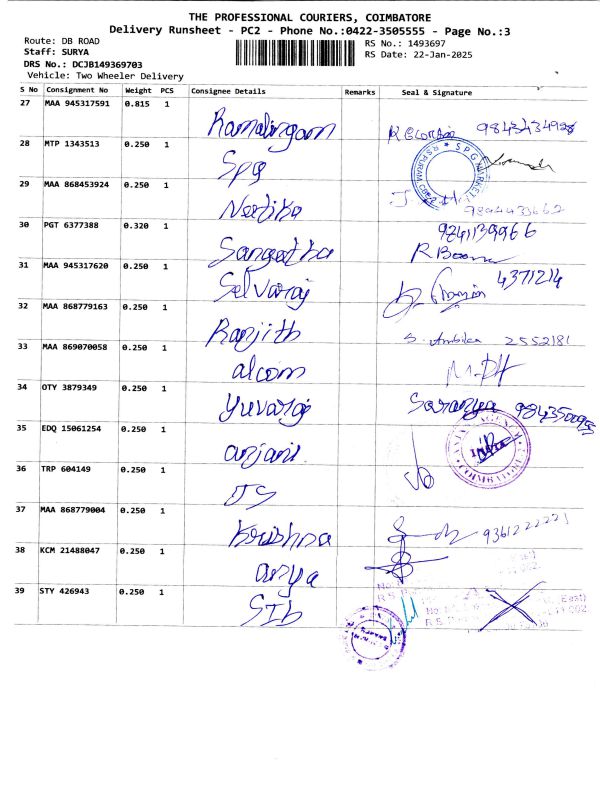 THE PROFESSIONAL COURIERS, COIMBATORE
Delivery Runsheet - PC2 - Phone No.:0422-3505555 - Page No.:3
Route: DB ROAD
RS No.: 1493697
Staff: SURYA
RS Date: 22-Jan-2025
DRS No.: DCJB149369703
Vehicle: Two Wheeler Delivery
S No Consignment No Weight PCS Consignee Details Remarks Seal & Signature
27 MAA 945317591 0.815 1 Ramalingam
28 MTP 1343513 0.250 1 Spg SPG MARKET
29 MAA 868453924 0.250 1 9894433662
30 PGT 6377388 0.320 1 Sangeetha
31 MAA 945317620 0.250 1 Selvaraj 4371214
32 MAA 868779163 0.250 1 Ranjith S. Ambika 2552181
33 MAA 869070058 0.250 1 alcom
34 OTY 3879349 0.250 1 Yuvaraj Saranya
35 EDQ 15061254 0.250 1 anjani COIMBATORE
36 TRP 604149 0.250 1
37 MAA 868779004 0.250 1 Krishna
38 KCM 21488047 0.250 1 anya
39 STY 426943 0.250 1 SIb